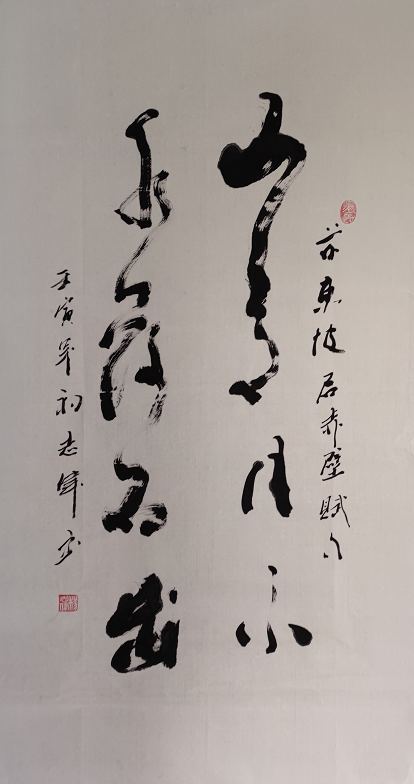 苏東坡后赤壁賦句
山高月小
水落石出
壬寅年初志书